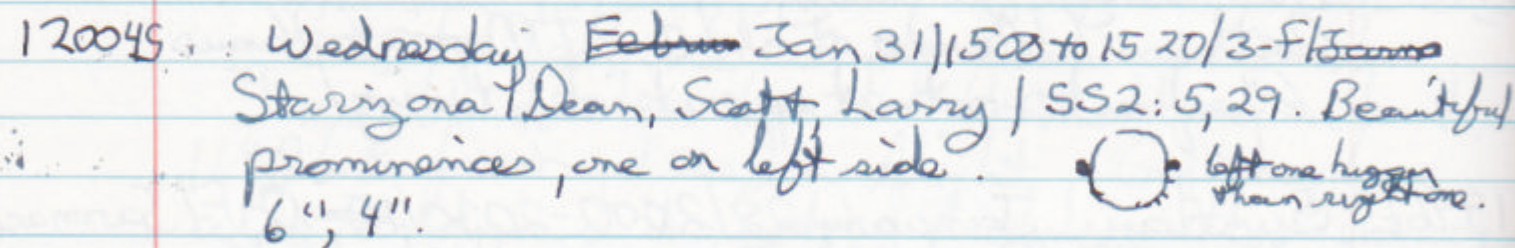 12004S. Wednesday Jan 31/1508 to 1520/3-F/
Starizona/Dean, Scott Larry / SS2: 5, 29. Beautiful
prominences, one on left side. left one bigger
than right one.
6", 4".